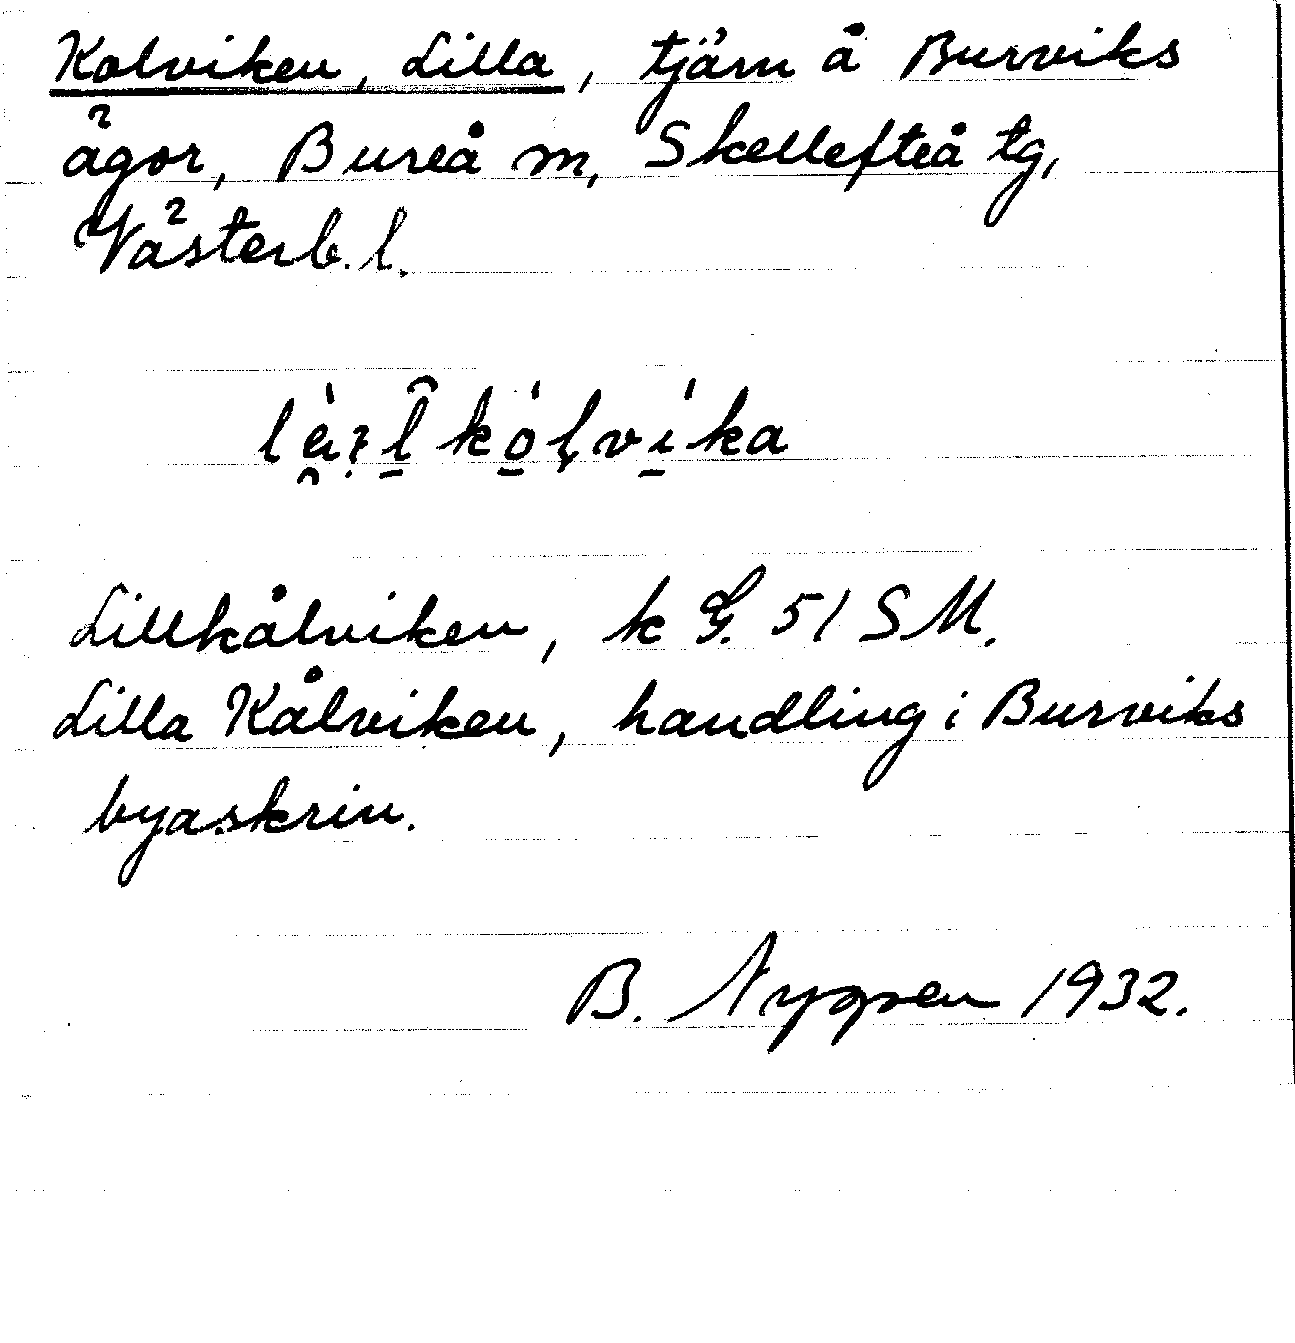 Kolviken, Lilla, tjärn å Burviks
ägor, Bureå m, Skellefteå tg,
Västerb. l.
Lillkålviken, k G. 51 S M.
Lilla Kålviken, handling i Burviks
byaskrin.
B. Nygren 1932.